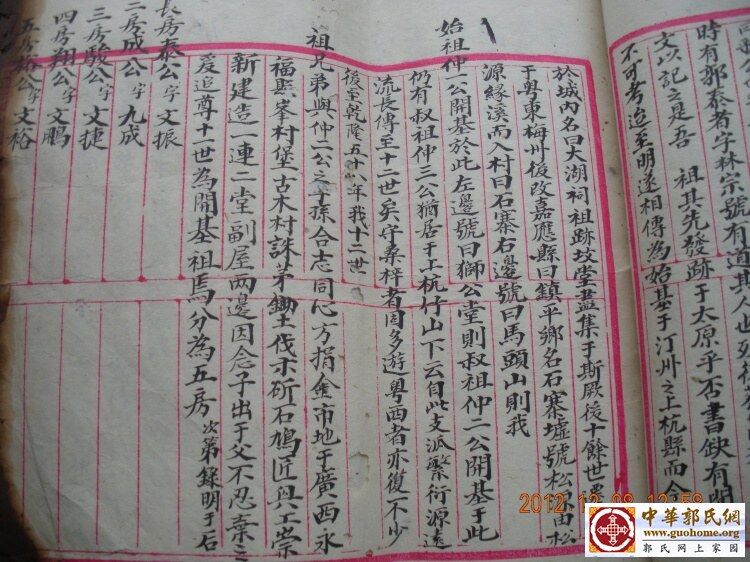 時有郭泰者字林宗號有道其人也
文以記之是吾　祖其先發跡于太原乎否書缺有間
不可考迨至明遂相傳為始基于汀州之上杭縣而
於城內名曰大湖祠祖跡坟堂盡集于斯厥後十餘世
于粵東梅州後改嘉應縣曰鎮平鄉名石寨墟號松由松
源緣溪而入村曰石寨右邊號曰馬頭山則我
始祖仲一公開基於此左邊號曰獅公堂則叔祖仲二公開基于此
仍有叔祖仲三公猶居于上杭仔山下云自此支派繁衍源遠
流長傳至十二世矣守桑梓者固多遊粵西者亦復不少
後至乾隆五十八年我十二世
祖兄弟與仲二公之子孫合志同心方捐金市地于廣西永
福縣峯村堡古木村誅茅鋤土伐木斫石鳩匠興工崇
新建造一連二堂副屋兩邊因念子出于父不忍棄之
爰追尊十一世為開基祖焉分為五房　次第錄明于右
長房泰公字文振
二房成公字九成
三房駿公字文捷
四房翔公字文鵬
五房裕公字文裕
2012 12 08
中華郭氏網
www.guohome.org
郭氏网上家园